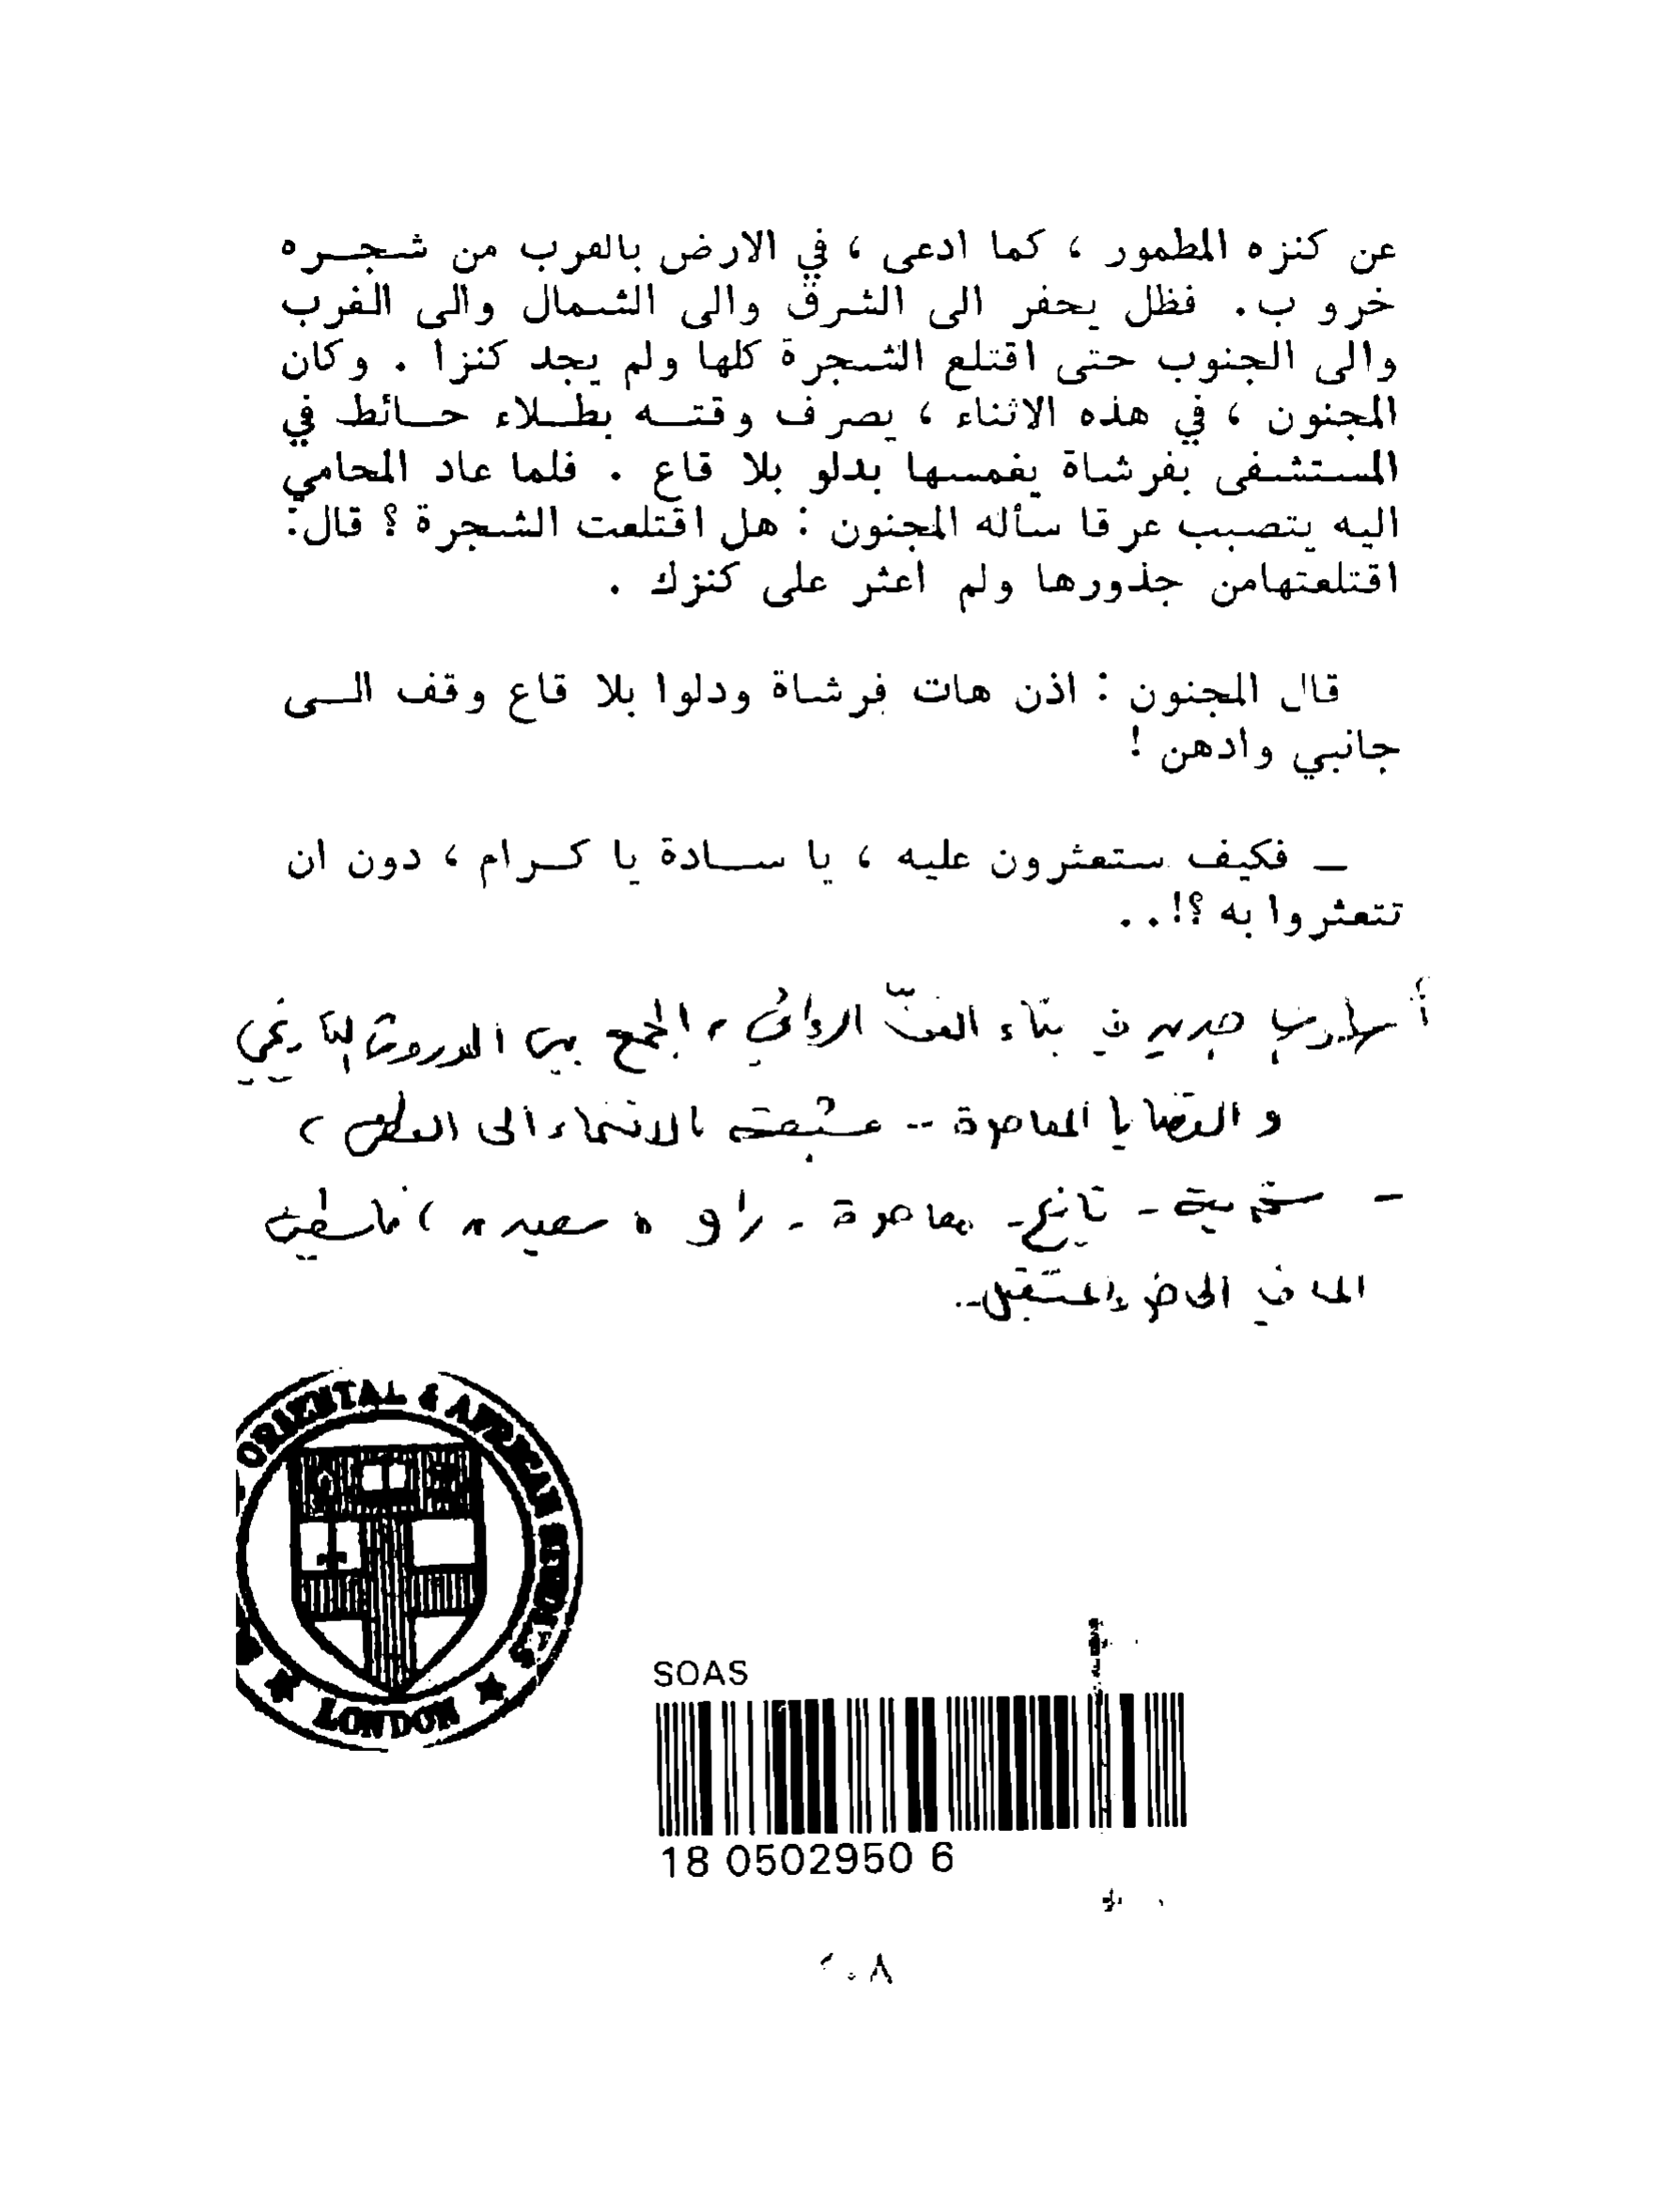 عن كنزه المطمور ، كما ادعى ، في الارض بالقرب من شجـــره
خرو ب. فظل يحفر الى الشرق والى الشمال والى الغرب
والى الجنوب حتى اقتلع الشجرة كلها ولم يجد كنزا . وكان
المجنون ، في هذه الاثناء ، يصرف وقتـــه بطـــلاء حـــائط في
المستشفى بفرشاة يغمسها بدلو بلا قاع . فلما عاد المحامي
اليه يتصبب عرقا سأله المجنون : هل اقتلعت الشجرة ؟ قال:
اقتلعتهامن جذورها ولم اعثر على كنزك .
قال المجنون : اذن هات فرشاة ودلوا بلا قاع وقف الـــى
جانبي وادهن !
ــ فكيف ستعثرون عليه ، يا ســـادة يا كـــرام ، دون ان
تتعثروا به ؟!..
أسلوب جديد في بناء الفنّ الروائي، الجمع بين الموروث التاريخي
و القضايا المعاصرة -- بالانتماء الى الوطن )
- سخرية - تاريخ - معاصرة - راو " سعيد " ) فلسطين
الحاضر والمستقبل..
ORIENTAL & AFRICAN STUDIES
LONDON
SOAS
18 0502950 6
٢٠٨